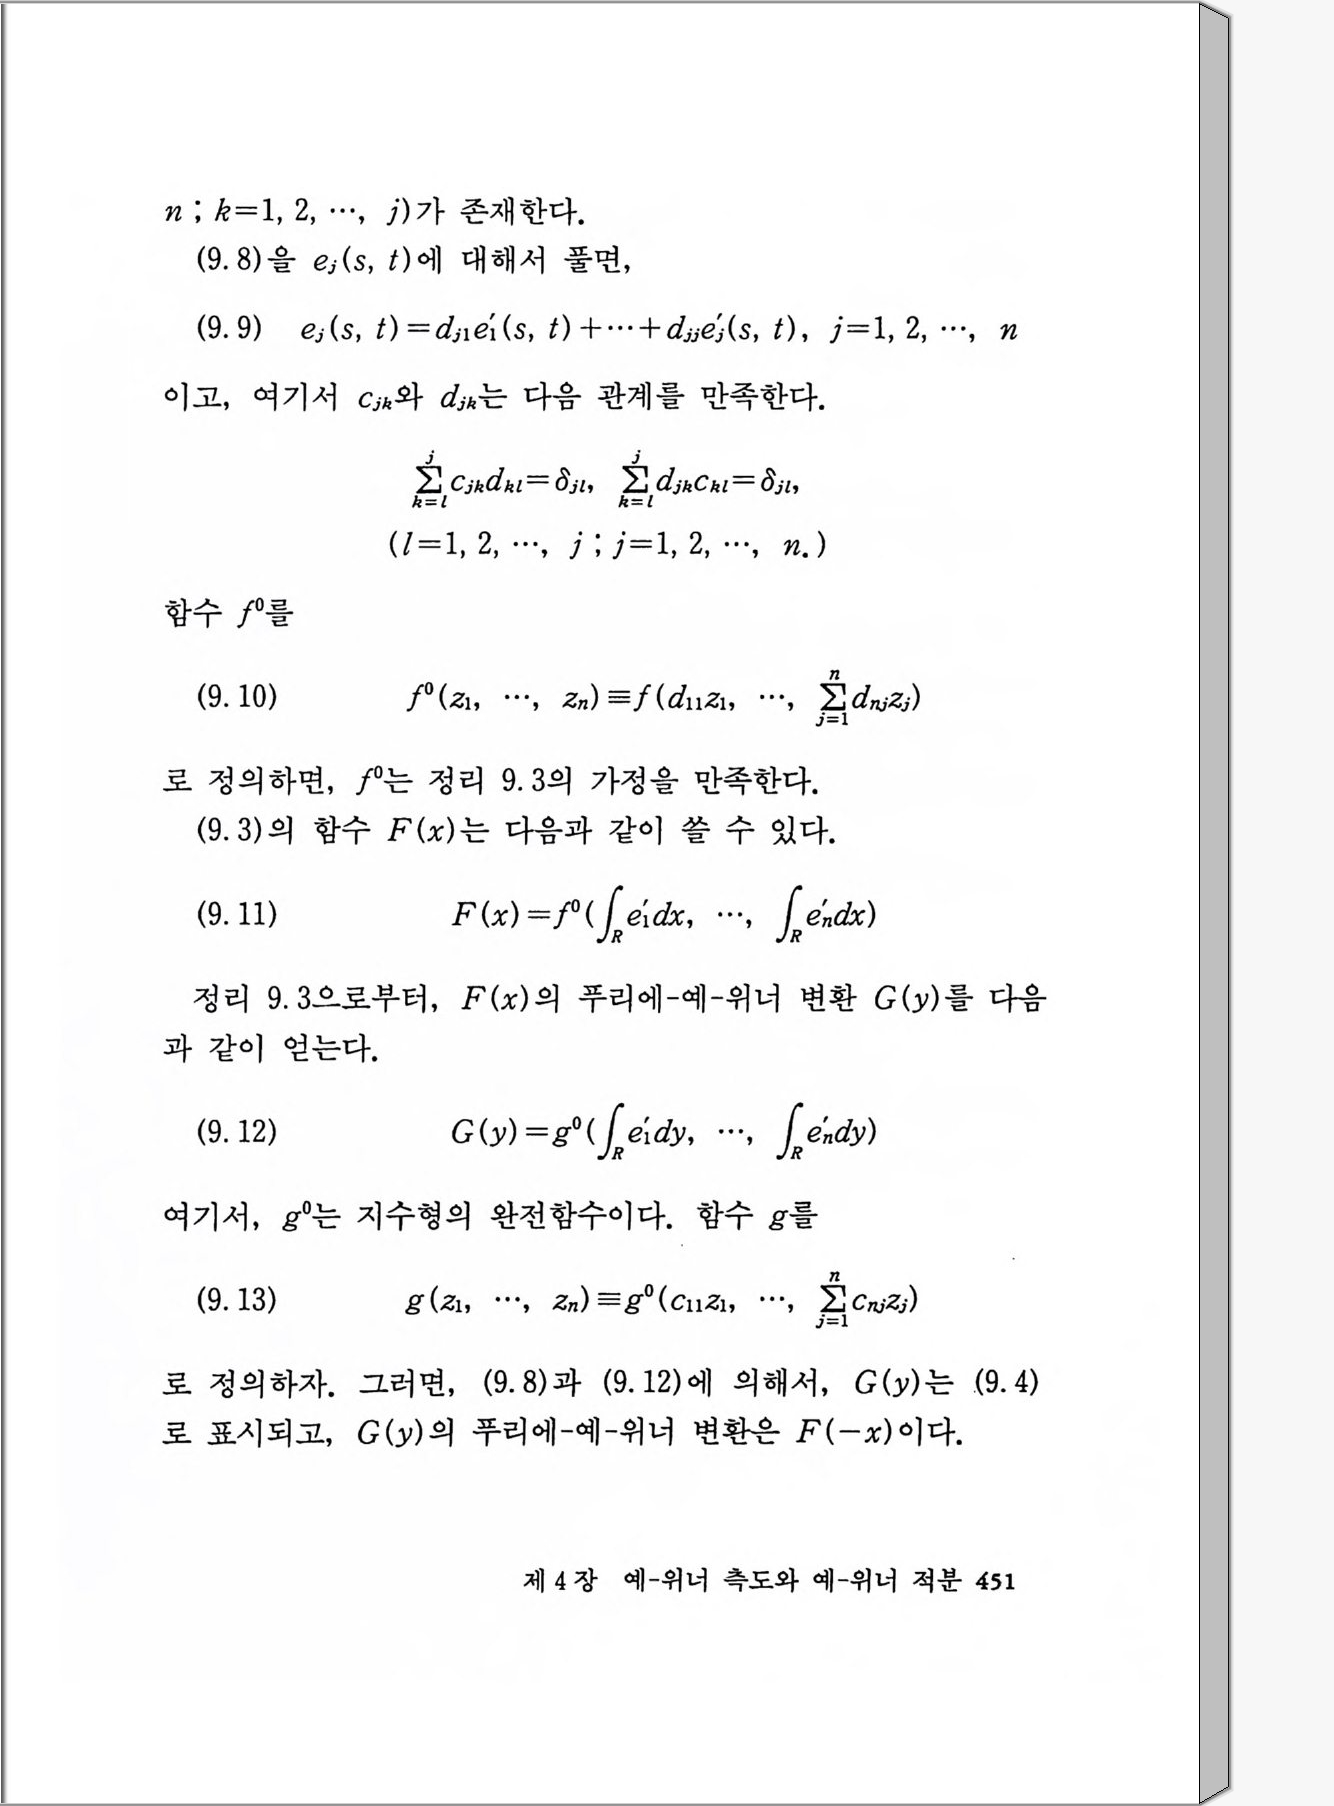 n ; k=1, 2, ⋯, j)가 존재한다.
(9. 8)을 e_j(s, t)에 대해서 풀면,
(9. 9) e_j(s, t)=d_{j1}e_1′(s, t)+⋯+d_{jj}e_j′(s, t), j=1, 2, ⋯, n
이고, 여기서 c_{jk}와 d_{jk}는 다음 관계를 만족한다.
\sum_{k=l}^{j} c_{jk}d_{kl}=δ_{jl}, \sum_{k=l}^{j} d_{jk}c_{kl}=δ_{jl},
(l=1, 2, ⋯, j ; j=1, 2, ⋯, n.)
함수 f⁰를
(9. 10) f⁰(z_1, ⋯, z_n)≡f(d_{11}z_1, ⋯, \sum_{j=1}^{n} d_{nj}z_j)
로 정의하면, f⁰는 정리 9. 3의 가정을 만족한다.
(9. 3)의 함수 F(x)는 다음과 같이 쓸 수 있다.
(9. 11) F(x)=f⁰(∫_R e_1′dx, ⋯, ∫_R e_n′dx)
정리 9. 3으로부터, F(x)의 푸리에-예-위너 변환 G(y)를 다음
과 같이 얻는다.
(9. 12) G(y)=g⁰(∫_R e_1′dy, ⋯, ∫_R e_n′dy)
여기서, g⁰는 지수형의 완전함수이다. 함수 g를
(9. 13) g(z_1, ⋯, z_n)≡g⁰(c_{11}z_1, ⋯, \sum_{j=1}^{n} c_{nj}z_j)
로 정의하자. 그러면, (9. 8)과 (9. 12)에 의해서, G(y)는 (9. 4)
로 표시되고, G(y)의 푸리에-예-위너 변환은 F(−x)이다.
제 4 장 예-위너 측도와 예-위너 적분 451